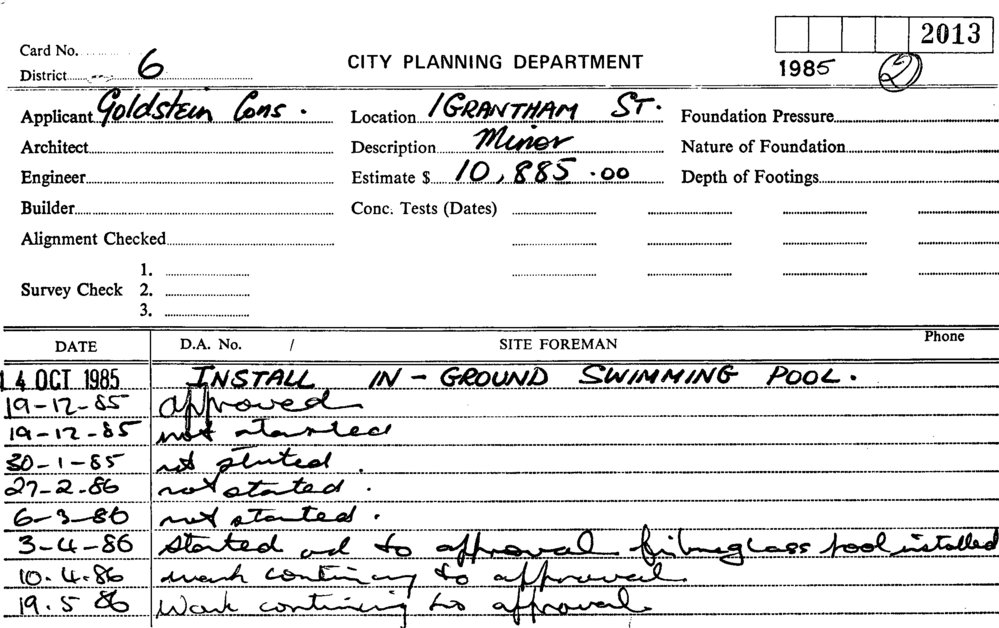 2013
Card No.
District 6
CITY PLANNING DEPARTMENT
1985 2
Applicant Goldstein Cons.
Location 1 GRANTHAM ST.
Foundation Pressure
Architect
Description Minor
Nature of Foundation
Engineer
Estimate $ 10,885.00
Depth of Footings
Builder
Conc. Tests (Dates)
Alignment Checked
1.
Survey Check 2.
3.
DATE D.A. No. / SITE FOREMAN Phone
14 OCT 1985 INSTALL IN-GROUND SWIMMING POOL.
19-12-85 approved
19-12-85 not started
30-1-85 not started.
27-2-86 not started.
6-3-86 not started.
3-4-86 started ad to approval fibreglass pool installed
10.4.86 work continuing to approval.
19.5 86 Work continuing to approval.